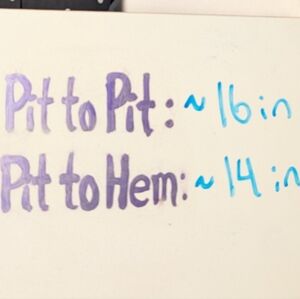 Pit to Pit: ~16 in
Pit to Hem: ~14 in